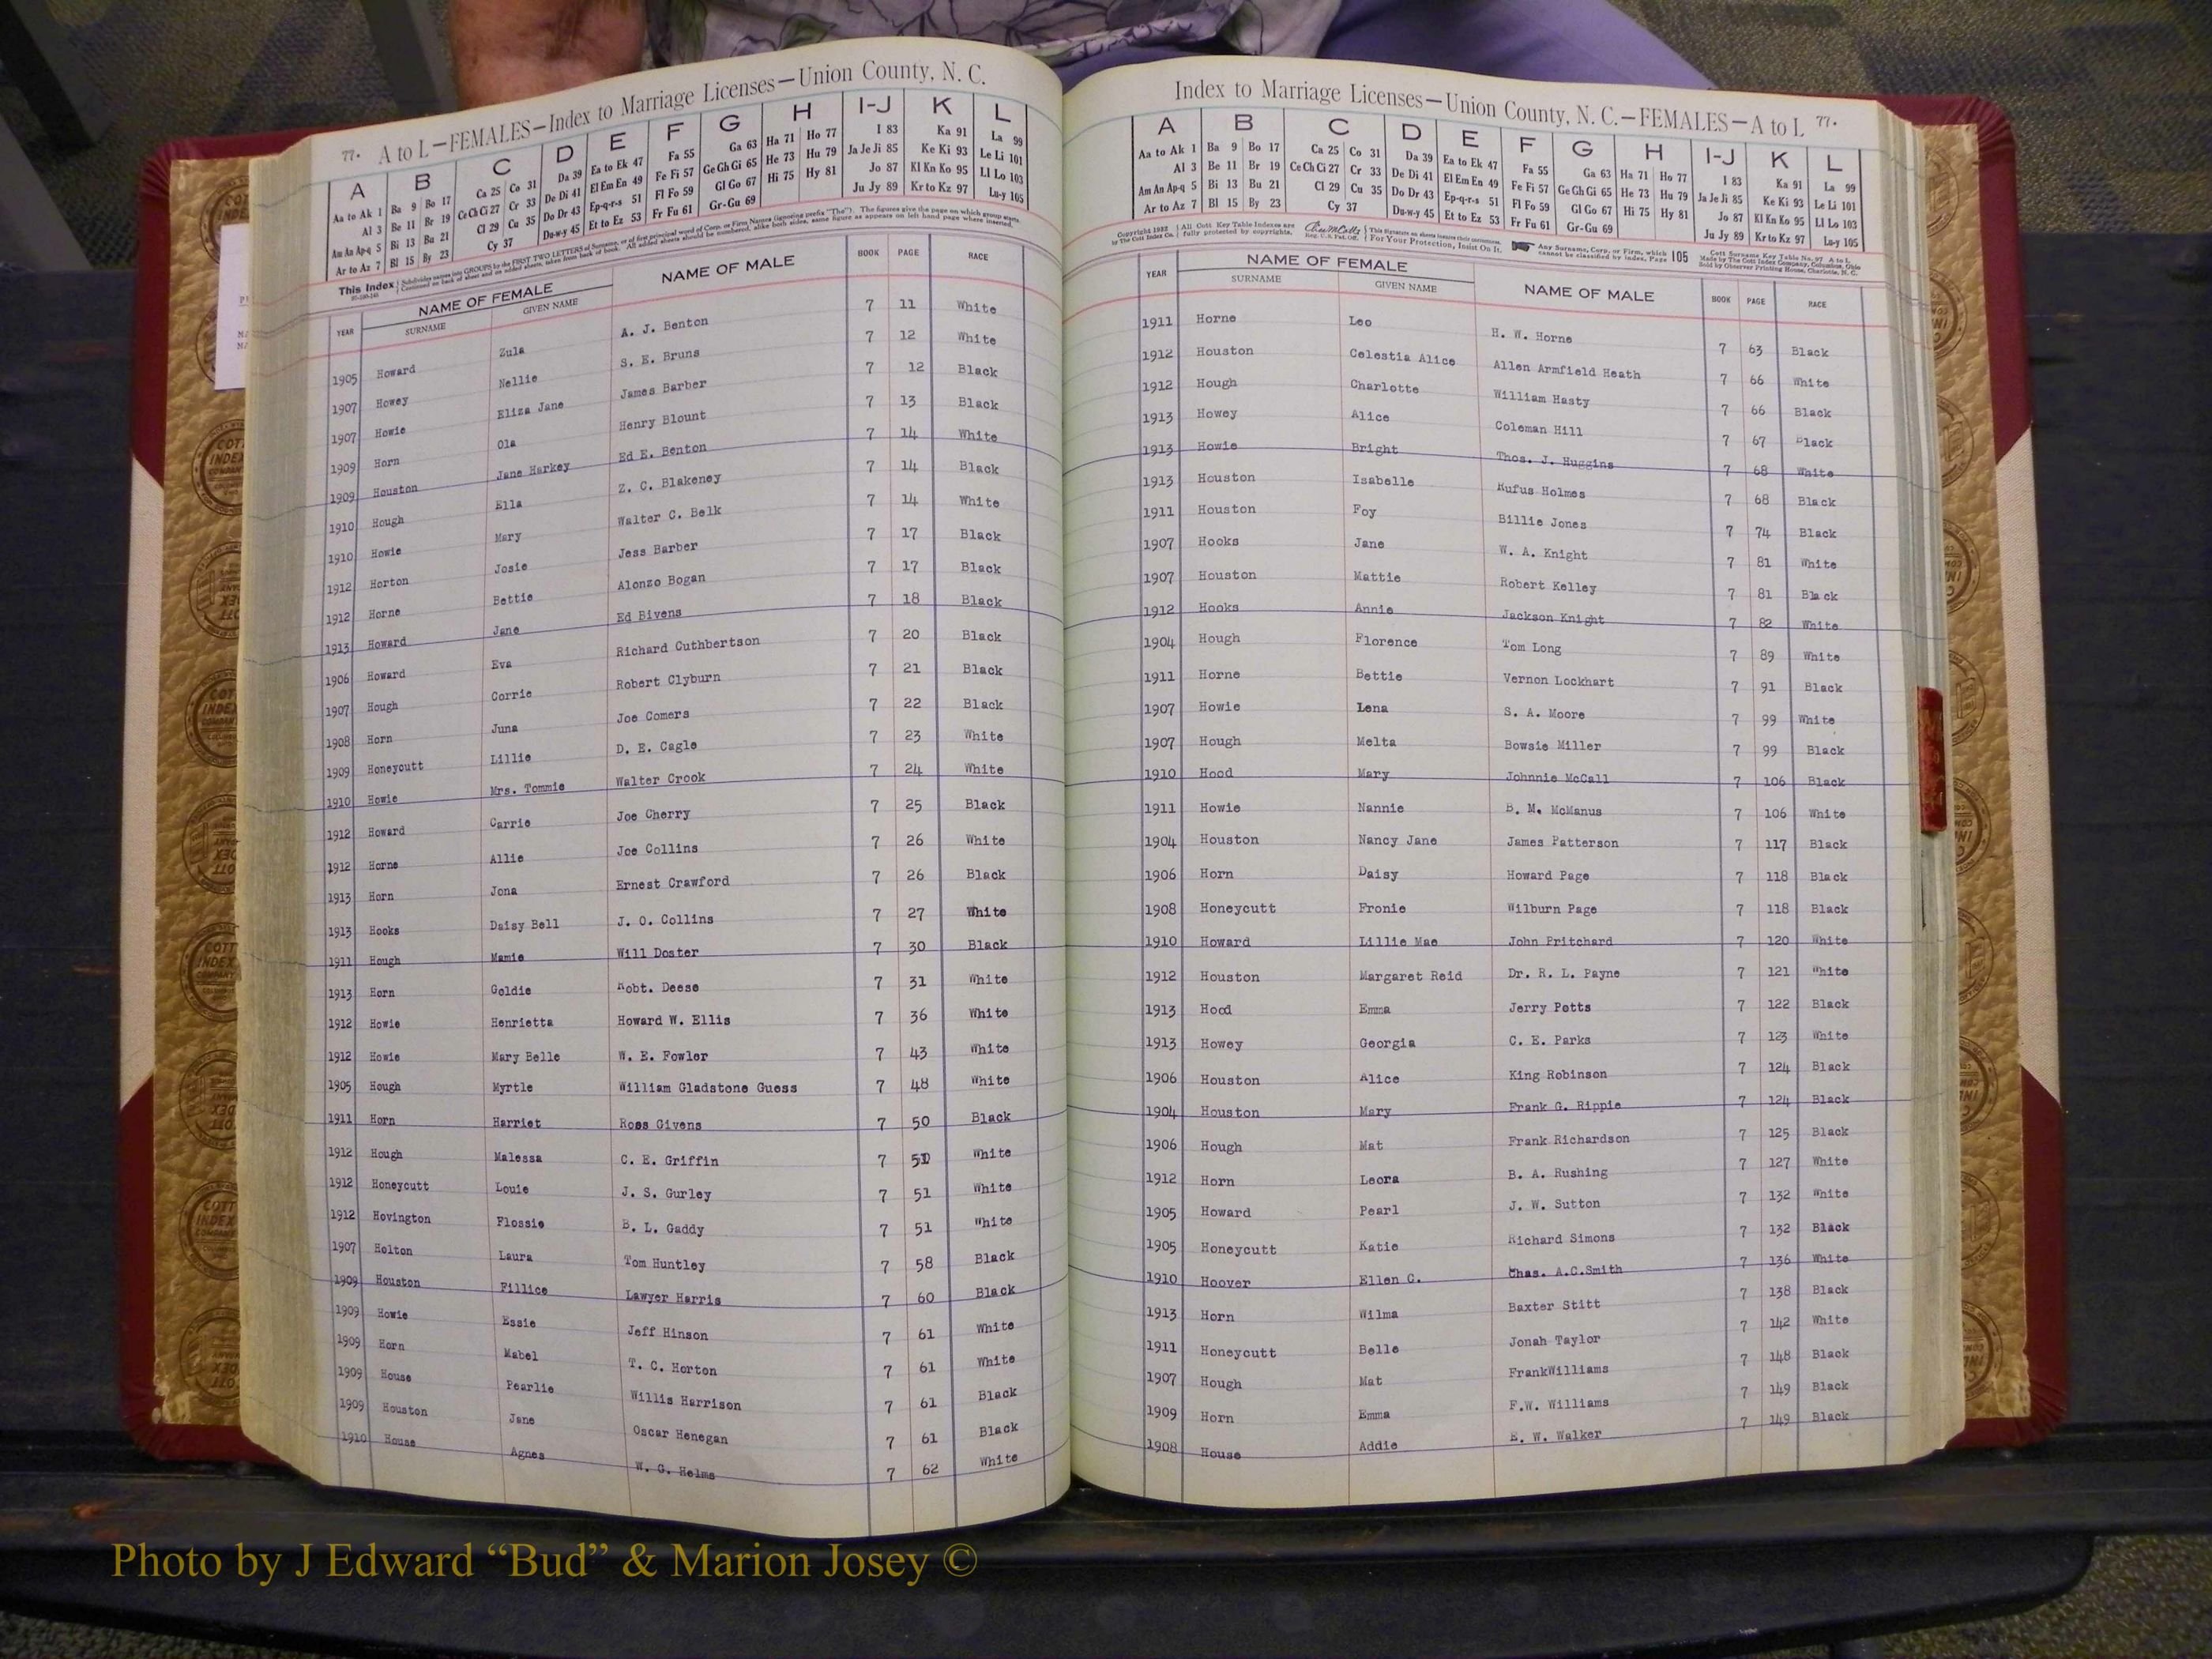 77. A to L—FEMALES—Index to Marriage Licenses—Union County, N. C.
A B C D E F G H I-J K L
Aa to Ak 1 Ba 9 Bo 17 Ca 25 Co 31 Da 39 Ea to Ek 47 Fa 55 Ga 63 Ha 71 Ho 77 I 83 Ka 91 La 99
Al 3 Be 11 Br 19 Ce Ch Ci 27 Cr 33 De Di 41 El Em En 49 Fe Fi 57 Ge Gh Gi 65 He 73 Hu 79 Ja Je Ji 85 Ke Ki 93 Le Li 101
Am An Ap-q 5 Bi 13 Bu 21 Cl 29 Cu 35 Do Dr 43 Ep-q-r-s 51 Fl Fo 59 Gl Go 67 Hi 75 Hy 81 Jo 87 Kl Kn Ko 95 Ll Lo 103
Ar to Az 7 Bl 15 By 23 Cy 37 Du-w-y 45 Et to Ez 53 Fr Fu 61 Gr-Gu 69 Ju Jy 89 Kr to Kz 97 Lu-y 105
This Index Subdivides names into GROUPS by the FIRST TWO LETTERS of Surname, or of first principal word of Corp. or Firm Names (ignoring prefix "The"). The figures give the page on which group starts.
Continued on back of sheet and on added sheets, taken from back of book. All added sheets should be numbered, alike both sides, same figure as appears on left hand page where inserted.
YEAR NAME OF FEMALE NAME OF MALE BOOK PAGE RACE
SURNAME GIVEN NAME
1905 Howard Zula A. J. Benton 7 11 White
1907 Howey Nellie S. E. Bruns 7 12 White
1907 Howie Eliza Jane James Barber 7 12 Black
1909 Horn Ola Henry Blount 7 13 Black
1909 Houston Jane Harkey Ed E. Benton 7 14 White
1910 Hough Ella Z. C. Blakeney 7 14 Black
1910 Howie Mary Walter C. Belk 7 14 White
1912 Horton Josie Jess Barber 7 17 Black
1912 Horne Bettie Alonzo Bogan 7 17 Black
1913 Howard Jane Ed Bivens 7 18 Black
1906 Howard Eva Richard Cuthbertson 7 20 Black
1907 Hough Corrie Robert Clyburn 7 21 Black
1908 Horn Juna Joe Comers 7 22 Black
1909 Honeycutt Lillie D. E. Cagle 7 23 White
1910 Howie Mrs. Tommie Walter Crook 7 24 White
1912 Howard Carrie Joe Cherry 7 25 Black
1912 Horne Allie Joe Collins 7 26 White
1913 Horn Jona Ernest Crawford 7 26 Black
1913 Hooks Daisy Bell J. O. Collins 7 27 White
1911 Hough Mamie Will Doster 7 30 Black
1913 Horn Goldie Robt. Deese 7 31 White
1912 Howie Henrietta Howard W. Ellis 7 36 White
1912 Howie Mary Belle W. E. Fowler 7 43 White
1905 Hough Myrtle William Gladstone Guess 7 48 White
1911 Horn Harriet Ross Givens 7 50 Black
1912 Hough Malessa C. E. Griffin 7 51 White
1912 Honeycutt Louie J. S. Gurley 7 51 White
1912 Hovington Flossie B. L. Gaddy 7 51 White
1907 Holton Laura Tom Huntley 7 58 Black
1909 Houston Fillice Lawyer Harris 7 60 Black
1909 Howie Essie Jeff Hinson 7 61 White
1909 Horn Mabel T. C. Horton 7 61 White
1909 House Pearlie Willis Harrison 7 61 Black
1909 Houston Jane Oscar Henegan 7 61 Black
1910 House Agnes W. G. Helms 7 62 White
Index to Marriage Licenses—Union County, N. C.—FEMALES—A to L 77.
A B C D E F G H I-J K L
Aa to Ak 1 Ba 9 Bo 17 Ca 25 Co 31 Da 39 Ea to Ek 47 Fa 55 Ga 63 Ha 71 Ho 77 I 83 Ka 91 La 99
Al 3 Be 11 Br 19 Ce Ch Ci 27 Cr 33 De Di 41 El Em En 49 Fe Fi 57 Ge Gh Gi 65 He 73 Hu 79 Ja Je Ji 85 Ke Ki 93 Le Li 101
Am An Ap-q 5 Bi 13 Bu 21 Cl 29 Cu 35 Do Dr 43 Ep-q-r-s 51 Fl Fo 59 Gl Go 67 Hi 75 Hy 81 Jo 87 Kl Kn Ko 95 Ll Lo 103
Ar to Az 7 Bl 15 By 23 Cy 37 Du-w-y 45 Et to Ez 53 Fr Fu 61 Gr-Gu 69 Ju Jy 89 Kr to Kz 97 Lu-y 105
YEAR NAME OF FEMALE NAME OF MALE BOOK PAGE RACE
SURNAME GIVEN NAME
1911 Horne Leo H. W. Horne 7 63 Black
1912 Houston Celestia Alice Allen Armfield Heath 7 66 White
1912 Hough Charlotte William Hasty 7 66 Black
1913 Howey Alice Coleman Hill 7 67 Black
1913 Howie Bright Thos. J. Huggins 7 68 White
1913 Houston Isabelle Rufus Holmes 7 68 Black
1911 Houston Foy Billie Jones 7 74 Black
1907 Hooks Jane W. A. Knight 7 81 White
1907 Houston Mattie Robert Kelley 7 81 Black
1912 Hooks Annie Jackson Knight 7 82 White
1904 Hough Florence Tom Long 7 89 White
1911 Horne Bettie Vernon Lockhart 7 91 Black
1907 Howie Lena S. A. Moore 7 99 White
1907 Hough Melta Bowsie Miller 7 99 Black
1910 Hood Mary Johnnie McCall 7 106 Black
1911 Howie Nannie B. M. McManus 7 106 White
1904 Houston Nancy Jane James Patterson 7 117 Black
1906 Horn Daisy Howard Page 7 118 Black
1908 Honeycutt Fronie Wilburn Page 7 118 Black
1910 Howard Lillie Mae John Pritchard 7 120 White
1912 Houston Margaret Reid Dr. R. L. Payne 7 121 White
1913 Hood Emma Jerry Potts 7 122 Black
1913 Howey Georgia C. E. Parks 7 123 White
1906 Houston Alice King Robinson 7 124 Black
1904 Houston Mary Frank G. Rippie 7 124 Black
1906 Hough Mat Frank Richardson 7 125 Black
1912 Horn Leora B. A. Rushing 7 127 White
1905 Howard Pearl J. W. Sutton 7 132 White
1905 Honeycutt Katie Richard Simons 7 132 Black
1910 Hoover Ellen C. Chas. A.C.Smith 7 136 White
1913 Horn Wilma Baxter Stitt 7 138 Black
1911 Honeycutt Belle Jonah Taylor 7 142 White
1907 Hough Mat FrankWilliams 7 148 Black
1909 Horn Emma F.W. Williams 7 149 Black
1908 House Addie E. W. Walker 7 149 Black
Photo by J Edward “Bud” & Marion Josey ©